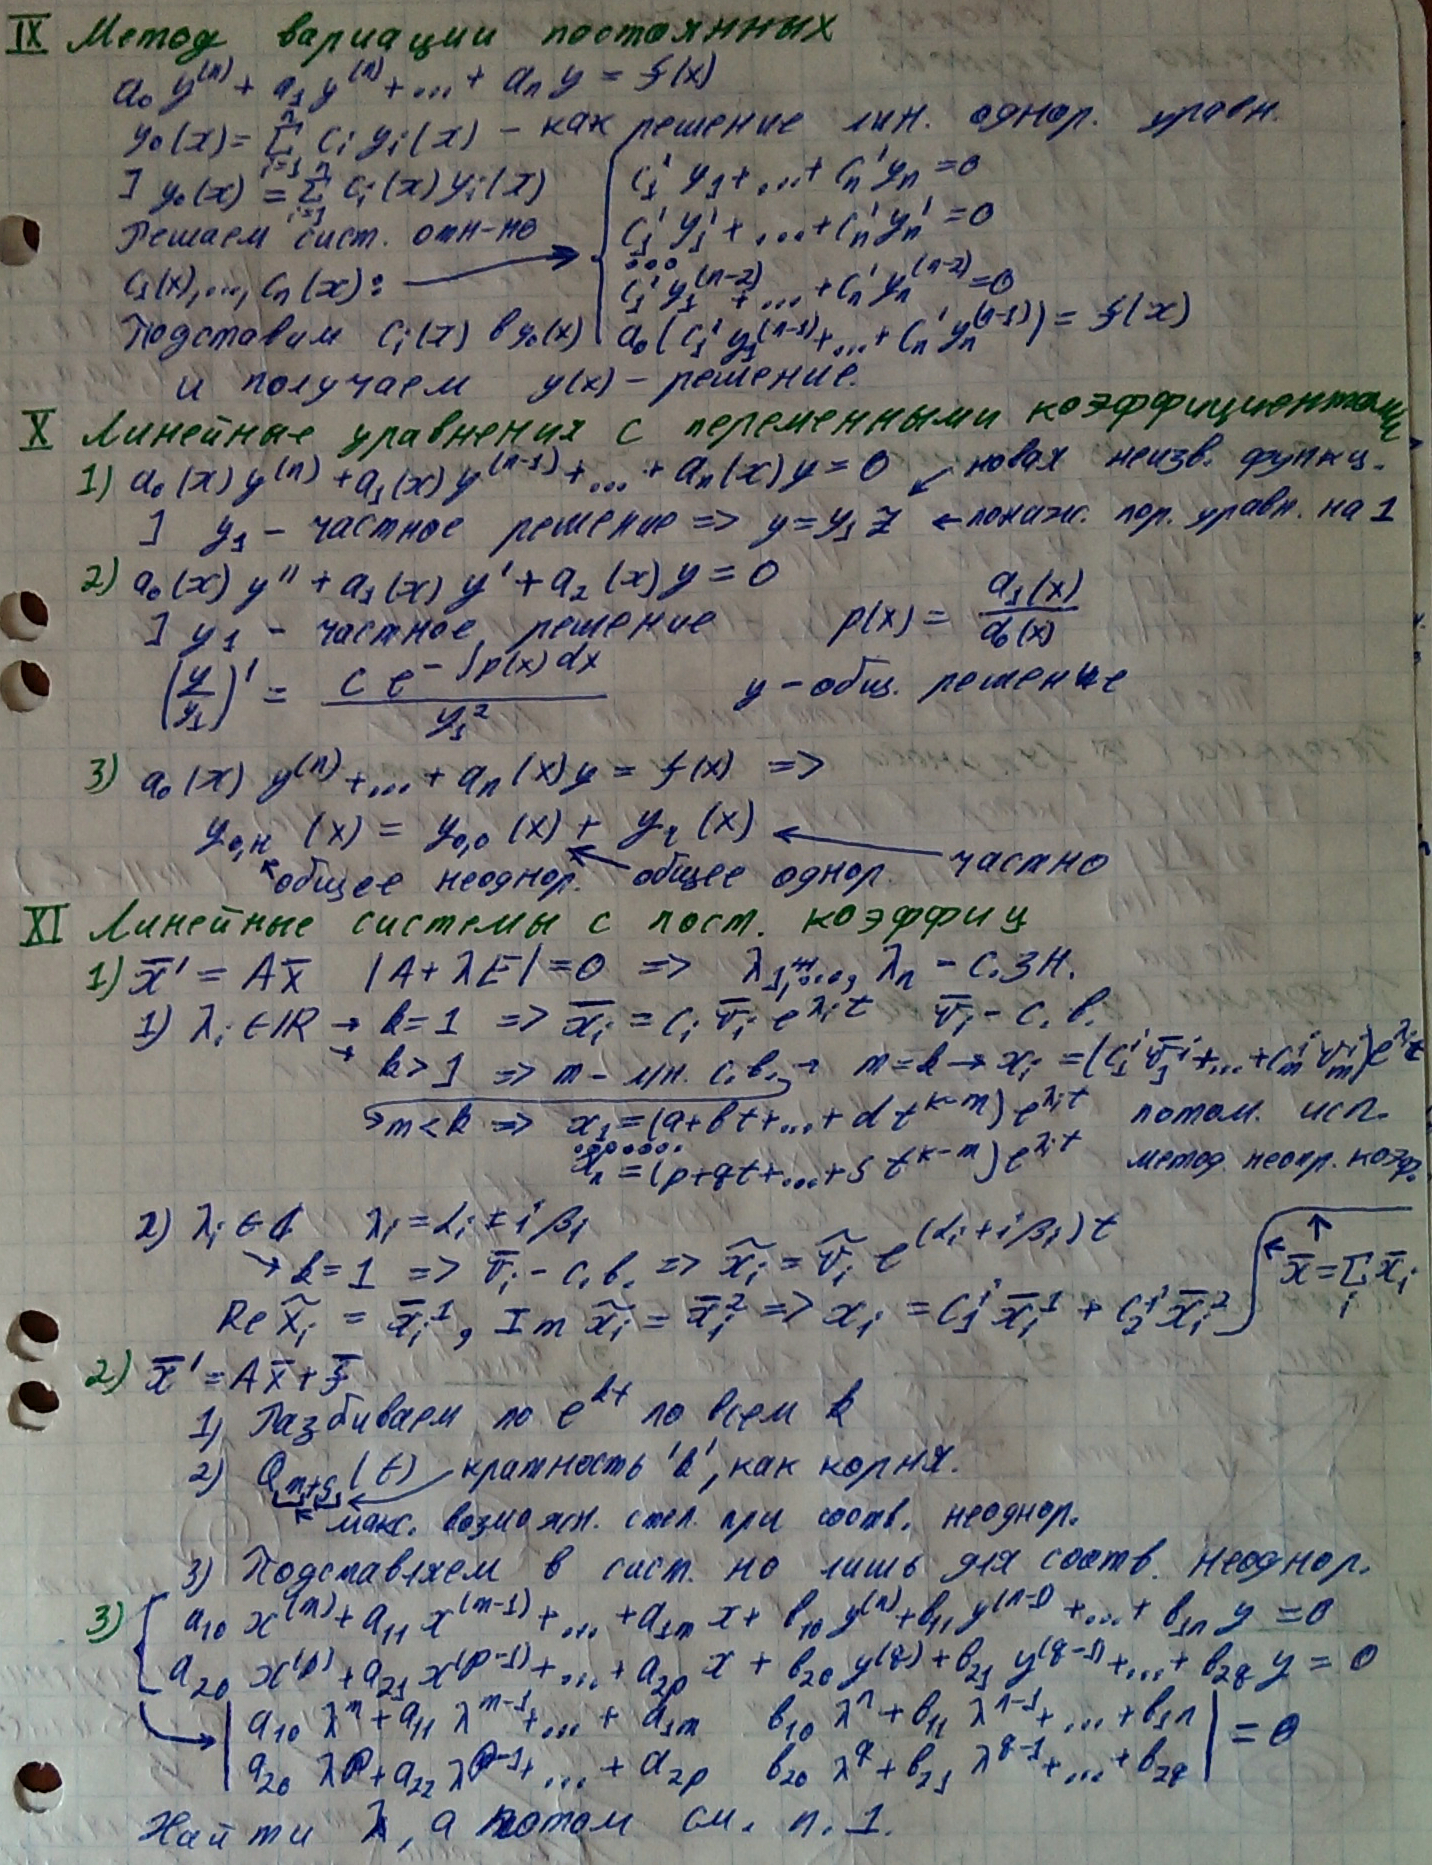 IX Метод вариации постоянных
a₀ y⁽ⁿ⁾ + a₁ y⁽ⁿ⁾ + ... + aₙ y = f(x)
y₀(x) = Σᵢ₌₁ⁿ cᵢ yᵢ(x) – как решение лин. однор. уравн.
] y₀(x) = Σᵢ₌₁ⁿ cᵢ(x) yᵢ(x)
Решаем сист. отн-но
c₁(x),...,cₙ(x):
Подставим cᵢ(x) в y₀(x)
{ c₁' y₁ + ... + cₙ' yₙ = 0
c₁' y₁' + ... + cₙ' yₙ' = 0
...
c₁' y₁⁽ⁿ⁻²⁾ + ... + cₙ' yₙ⁽ⁿ⁻²⁾ = 0
a₀(c₁' y₁⁽ⁿ⁻¹⁾ + ... + cₙ' yₙ⁽ⁿ⁻¹⁾) = f(x)
и получаем y(x) – решение.
X Линейные уравнения с переменными коэффициентами
1) a₀(x) y⁽ⁿ⁾ + a₁(x) y⁽ⁿ⁻¹⁾ + ... + aₙ(x) y = 0 ↙ новая неизв. функц.
] y₁ – частное решение => y = y₁ z ← пониж. пор. уравн. на 1
2) a₀(x) y'' + a₁(x) y' + a₂(x) y = 0
] y₁ – частное решение p(x) = a₁(x)/a₀(x)
(y/y₁)' = c e^(-∫p(x)dx) / y₁² y – общ. решение
3) a₀(x) y⁽ⁿ⁾ + ... + aₙ(x) y = f(x) =>
y₀,н (x) = y₀,₀ (x) + yч (x) ← частно
общее неоднор. общее однор.
XI Линейные системы с пост. коэффиц
1) x̄' = A x̄ |A + λE| = 0 => λ₁,..., λₙ – с. зн.
1) λᵢ ∈ ℝ → k = 1 => x̄ᵢ = cᵢ v̄ᵢ e^(λᵢt) v̄ᵢ – с. в.
→ k > 1 => m – лн. с. в. → m = k → xᵢ = (c₁ⁱ v̄₁ⁱ + ... + cₘⁱ vₘⁱ) e^(λᵢt)
→ m < k => x₁ = (a + bt + ... + d t^(k-m)) e^(λᵢt) потом. исп.
......
xₙ = (p + qt + ... + s t^(k-m)) e^(λᵢt) метод неопр. коэф.
2) λᵢ ∈ ℂ λᵢ = αᵢ ± i βᵢ
→ k = 1 => v̄ᵢ – с. в. => x̃ᵢ = ṽᵢ e^((αᵢ + iβᵢ)t)
x̄ = Σᵢ x̄ᵢ
Re x̃ᵢ = x̄ᵢ¹, Im x̃ᵢ = x̄ᵢ² => xᵢ = C₁ⁱ x̄ᵢ¹ + C₂ⁱ x̄ᵢ²
2) x̄' = A x̄ + f̄
1) Разбиваем по e^(kt) по всем k
2) Qₘ₊ₛ(t) кратность 'k', как корня.
макс. возможн. степ. при соотв. неоднор.
3) Подставляем в сист. но лишь для соотв. неоднор.
3) { a₁₀ x⁽ᵐ⁾ + a₁₁ x⁽ᵐ⁻¹⁾ + ... + a₁ₘ x + b₁₀ y⁽ⁿ⁾ + b₁₁ y⁽ⁿ⁻¹⁾ + ... + b₁ₙ y = 0
a₂₀ x^(p) + a₂₁ x^(p-1) + ... + a₂p x + b₂₀ y^(q) + b₂₁ y^(q-1) + ... + b₂q y = 0
→ | a₁₀ λᵐ + a₁₁ λᵐ⁻¹ + ... + a₁ₘ b₁₀ λⁿ + b₁₁ λⁿ⁻¹ + ... + b₁ₙ | = 0
a₂₀ λ^p + a₂₂ λ^(p-1) + ... + a₂p b₂₀ λ^q + b₂₁ λ^(q-1) + ... + b₂q
Найти λ, а потом см. п. 1.